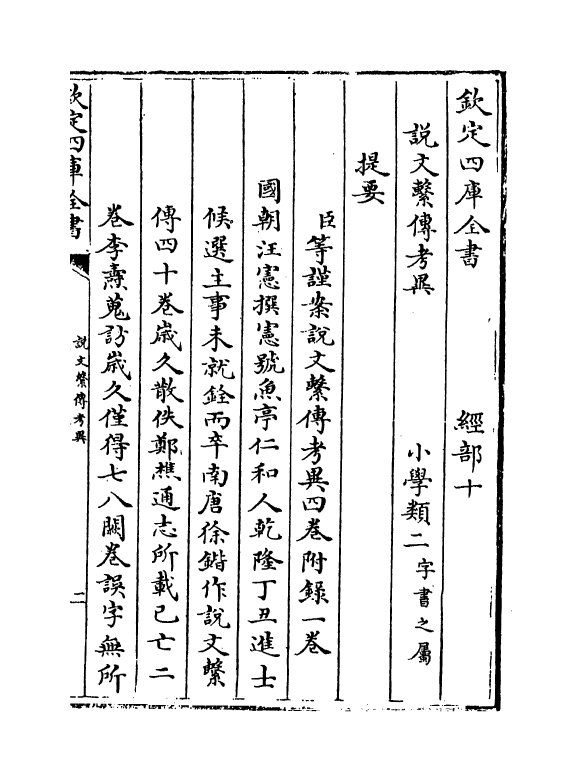 欽定四庫全書 經部十
說文繫傳考異 小學類二字書之屬
提要
臣等謹案說文繫傳考異四卷附錄一卷
國朝汪憲撰憲號魚亭仁和人乾隆丁丑進士
候選主事未就銓而卒南唐徐鍇作說文繫
傳四十卷歲久散佚鄭樵通志所載已亡二
卷李燾蒐訪歲久僅得七八闕卷誤字無所
欽定四庫全書
說文繫傳考異
二